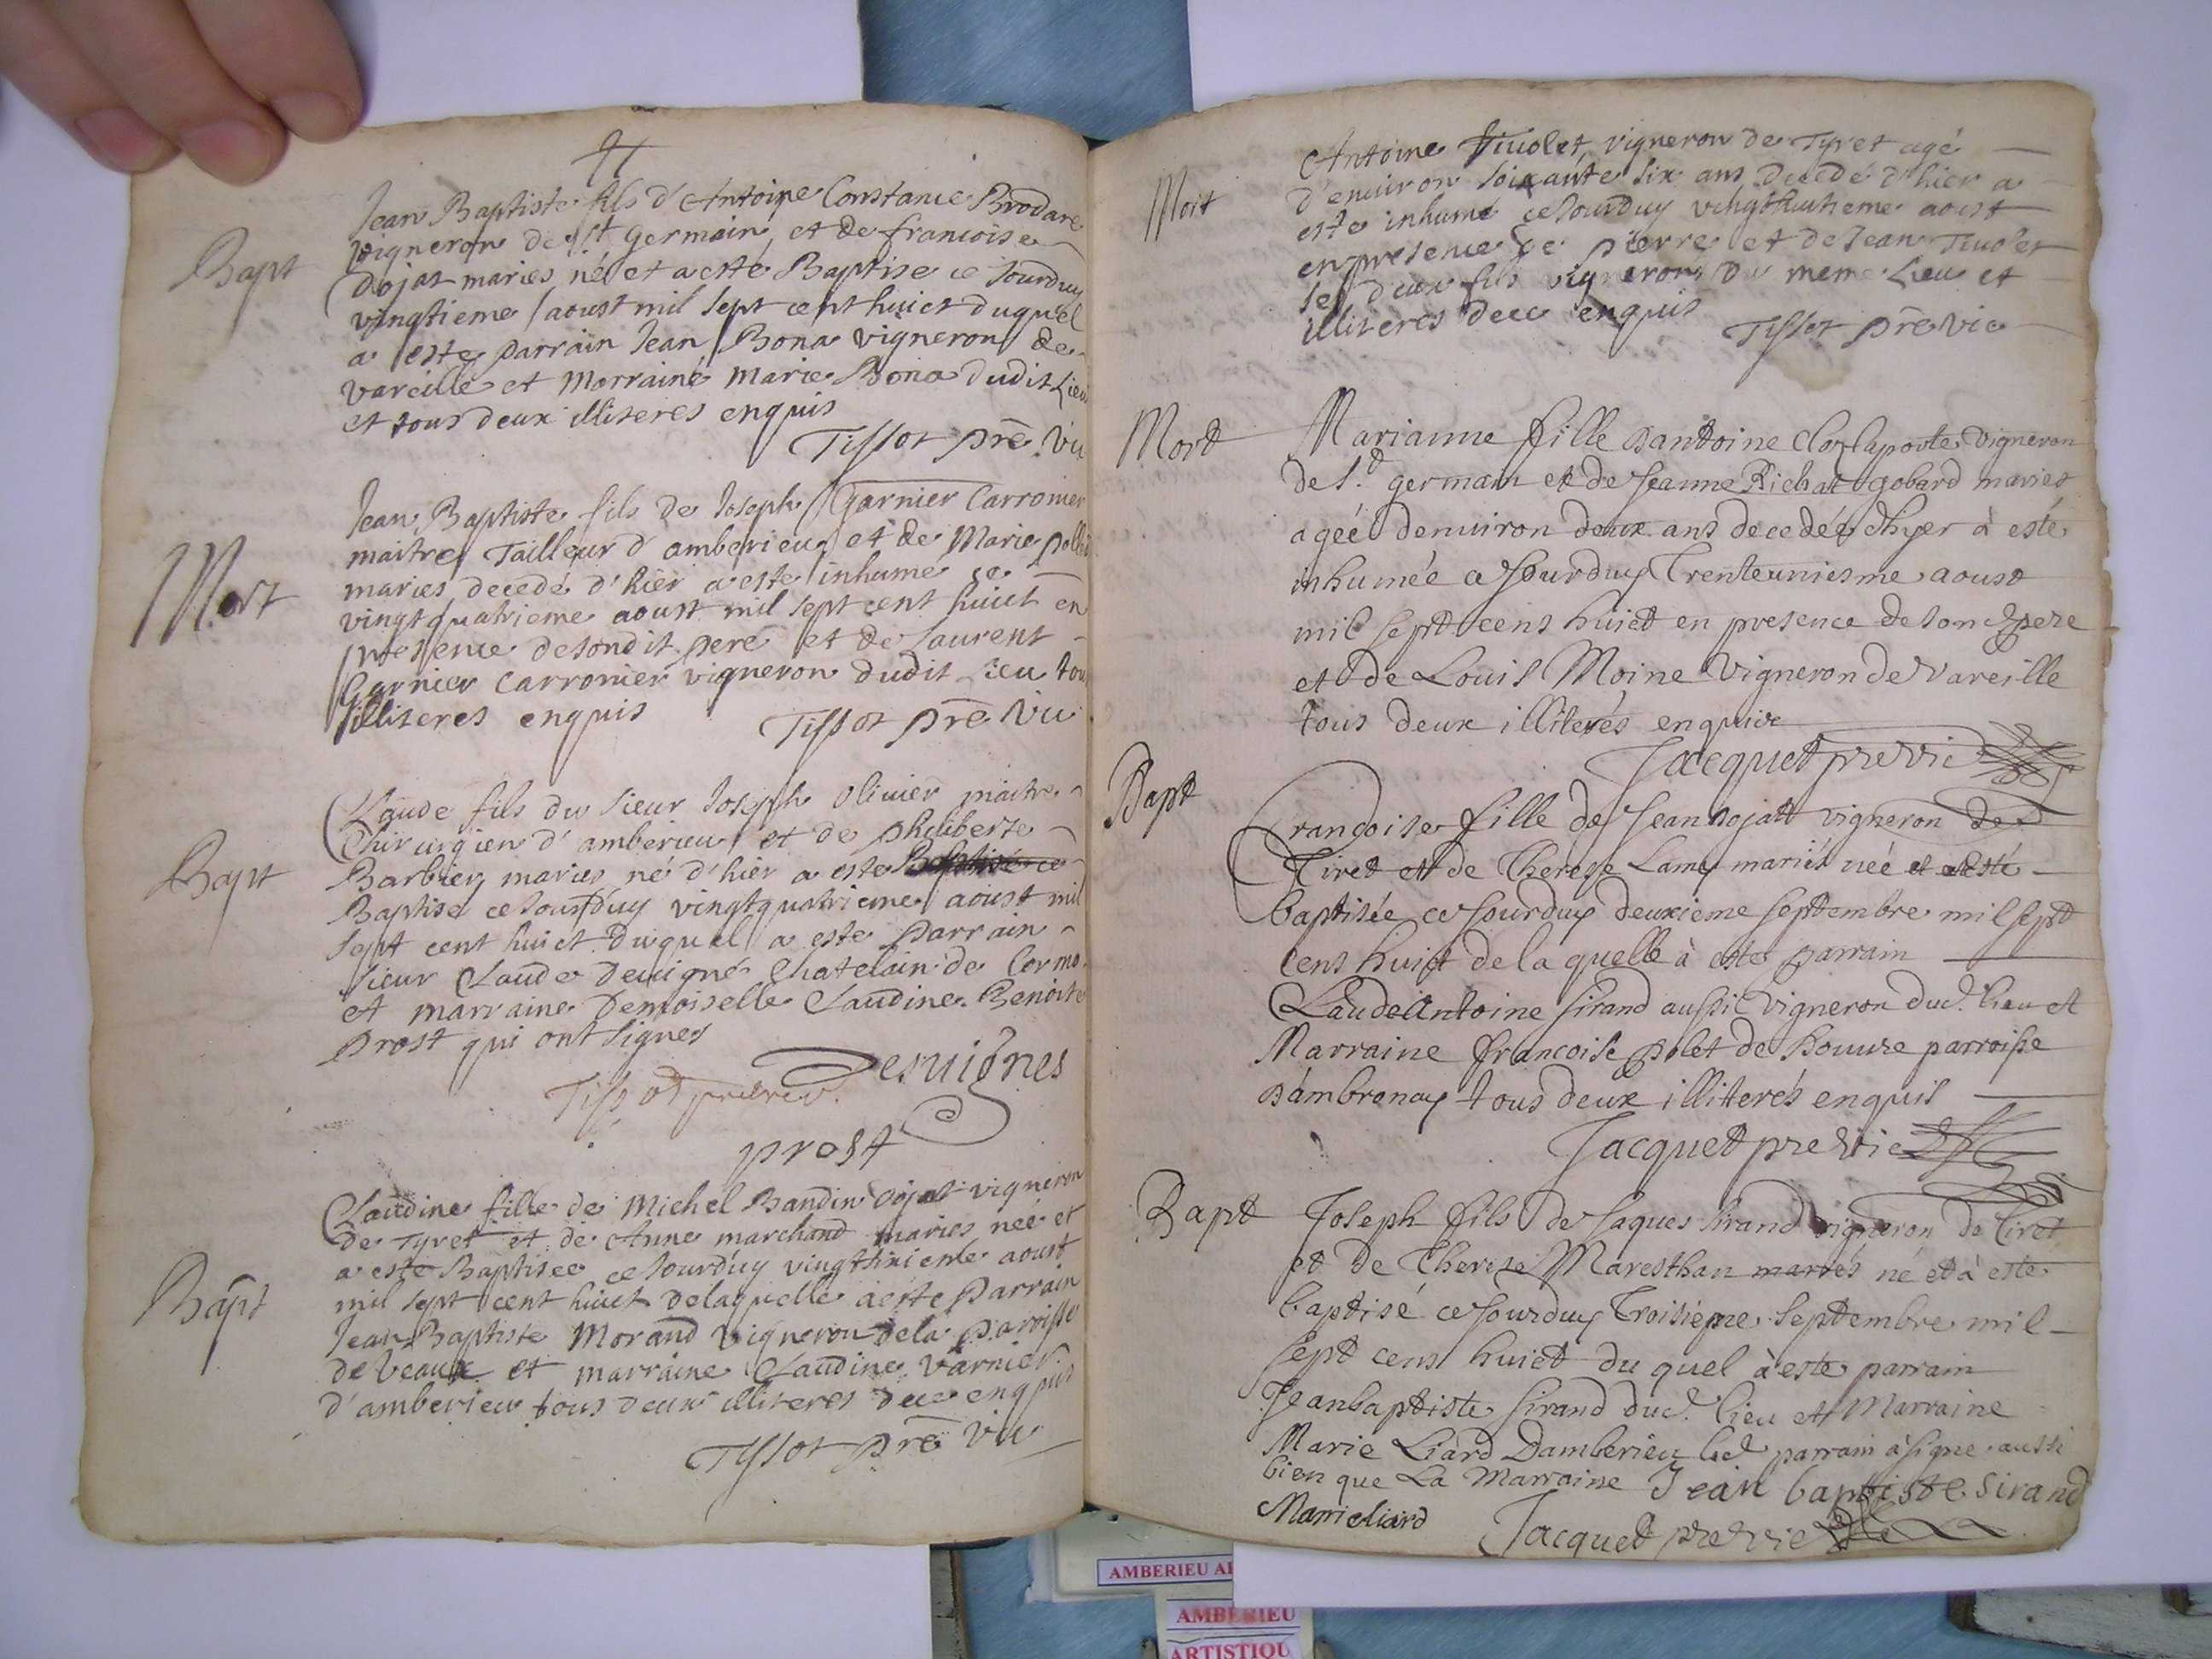 Bapt
Jean Baptiste fils d'Antoine Constance Brodare
vigneron de st Germain, et de francoise
Dojat maries né et a esté Baptise ce Jourduy
vingtieme aoust mil sept cent huict duquel
a este parrain Jean Bona vigneron de
vareille et Marraine Marie Bona dudit Lieu
et tous deux illiteres enquis
Tissot prē vic
Mort
Jean Baptiste fils de Joseph Garnier Carronier
maitre Tailleur d'amberieu et de Marie
maries decedé d'hier a este inhume ce
vingtquatrieme aoust mil sept cent huict en
presence desondit pere et de Laurent
Garnier Carronier vigneron dudit Lieu tous
illiteres enquis
Tissot prē vic
Bapt
Claude fils du sieur Joseph Olivier maitre
Chirurgien d'amberieu et de philiberte
Barbier maries né d'hier a este Baptisé ce
Baptise ce Jourduy vingtquatrieme aoust mil
sept cent huict duquel a este parrain
sieur Claude Deuigne Chatelain de Cormo
et marraine Demoiselle Claudine Benoite
prost qui ont signes
Desuignes
Tissot
prost
Bapt
Claudine fille de Michel Bandin Dojat vigneron
de Tyret et de Anne marchand maries née et
a este Baptisee ce Jourduy vingtsixieme aoust
mil sept cent huict delaquelle a este parrain
Jean Baptiste Morand vigneron dela paroisse
de Veaux et marraine Claudine Varnier
d'amberieu tous deux illiteres dece enquis
Tissot prē vic
Mort
Antoine Tiuolet, vigneron de Tyret agé
d'enuiron soixante six ans decedé d'hier a
este inhumé ce Jourduy vingthuitieme aoust
en presence de pierre et de Jean Tiuolet
ses deux fils vignerons du meme Lieu et
illiteres dece enquis
Tissot prē vic
Mort
Marianne fille Dantoine Clozlaporte vigneron
de St. germain et de Jeanne Richat gobard mariés
agée denuiron deux ans decedée dhyer à esté
inhumée ce Jourduy Trenteuniesme aoust
mil sept cens huict en presence de son d. pere
et de Louis Moine Vigneron de Vareille
tous deux illiterés enquis
Jacquet pre vic
Bapt
Francoise fille de Jean Dojatt vigneron de
Tiret et de Therese Lamy mariés née et a esté
baptisée ce Jourduy deuxieme septembre mil sept
cens huict de la quelle à este parrain
Claude Antoine sirand aussi vigneron dud. lieu et
Marraine francoise polet de Bouure parroisse
Dambronay tous deux illiterés enquis
Jacquet pre vic
Bapt
Joseph fils de Jaques sirand vigneron de Tiret
et de Therese Maresthan mariés né et à este
baptisé ce Jourduy Troisieme septembre mil
sept cens huict du quel à este parrain
Jeanbaptiste sirand dud. lieu et Marraine
Marie Liard Damberieu led parrain à signe aussi
bien que La Marraine Jean baptiste sirand
Marie liard
Jacquet pre vic
AMBERIEU
AMBERIEU
ARTISTIQU